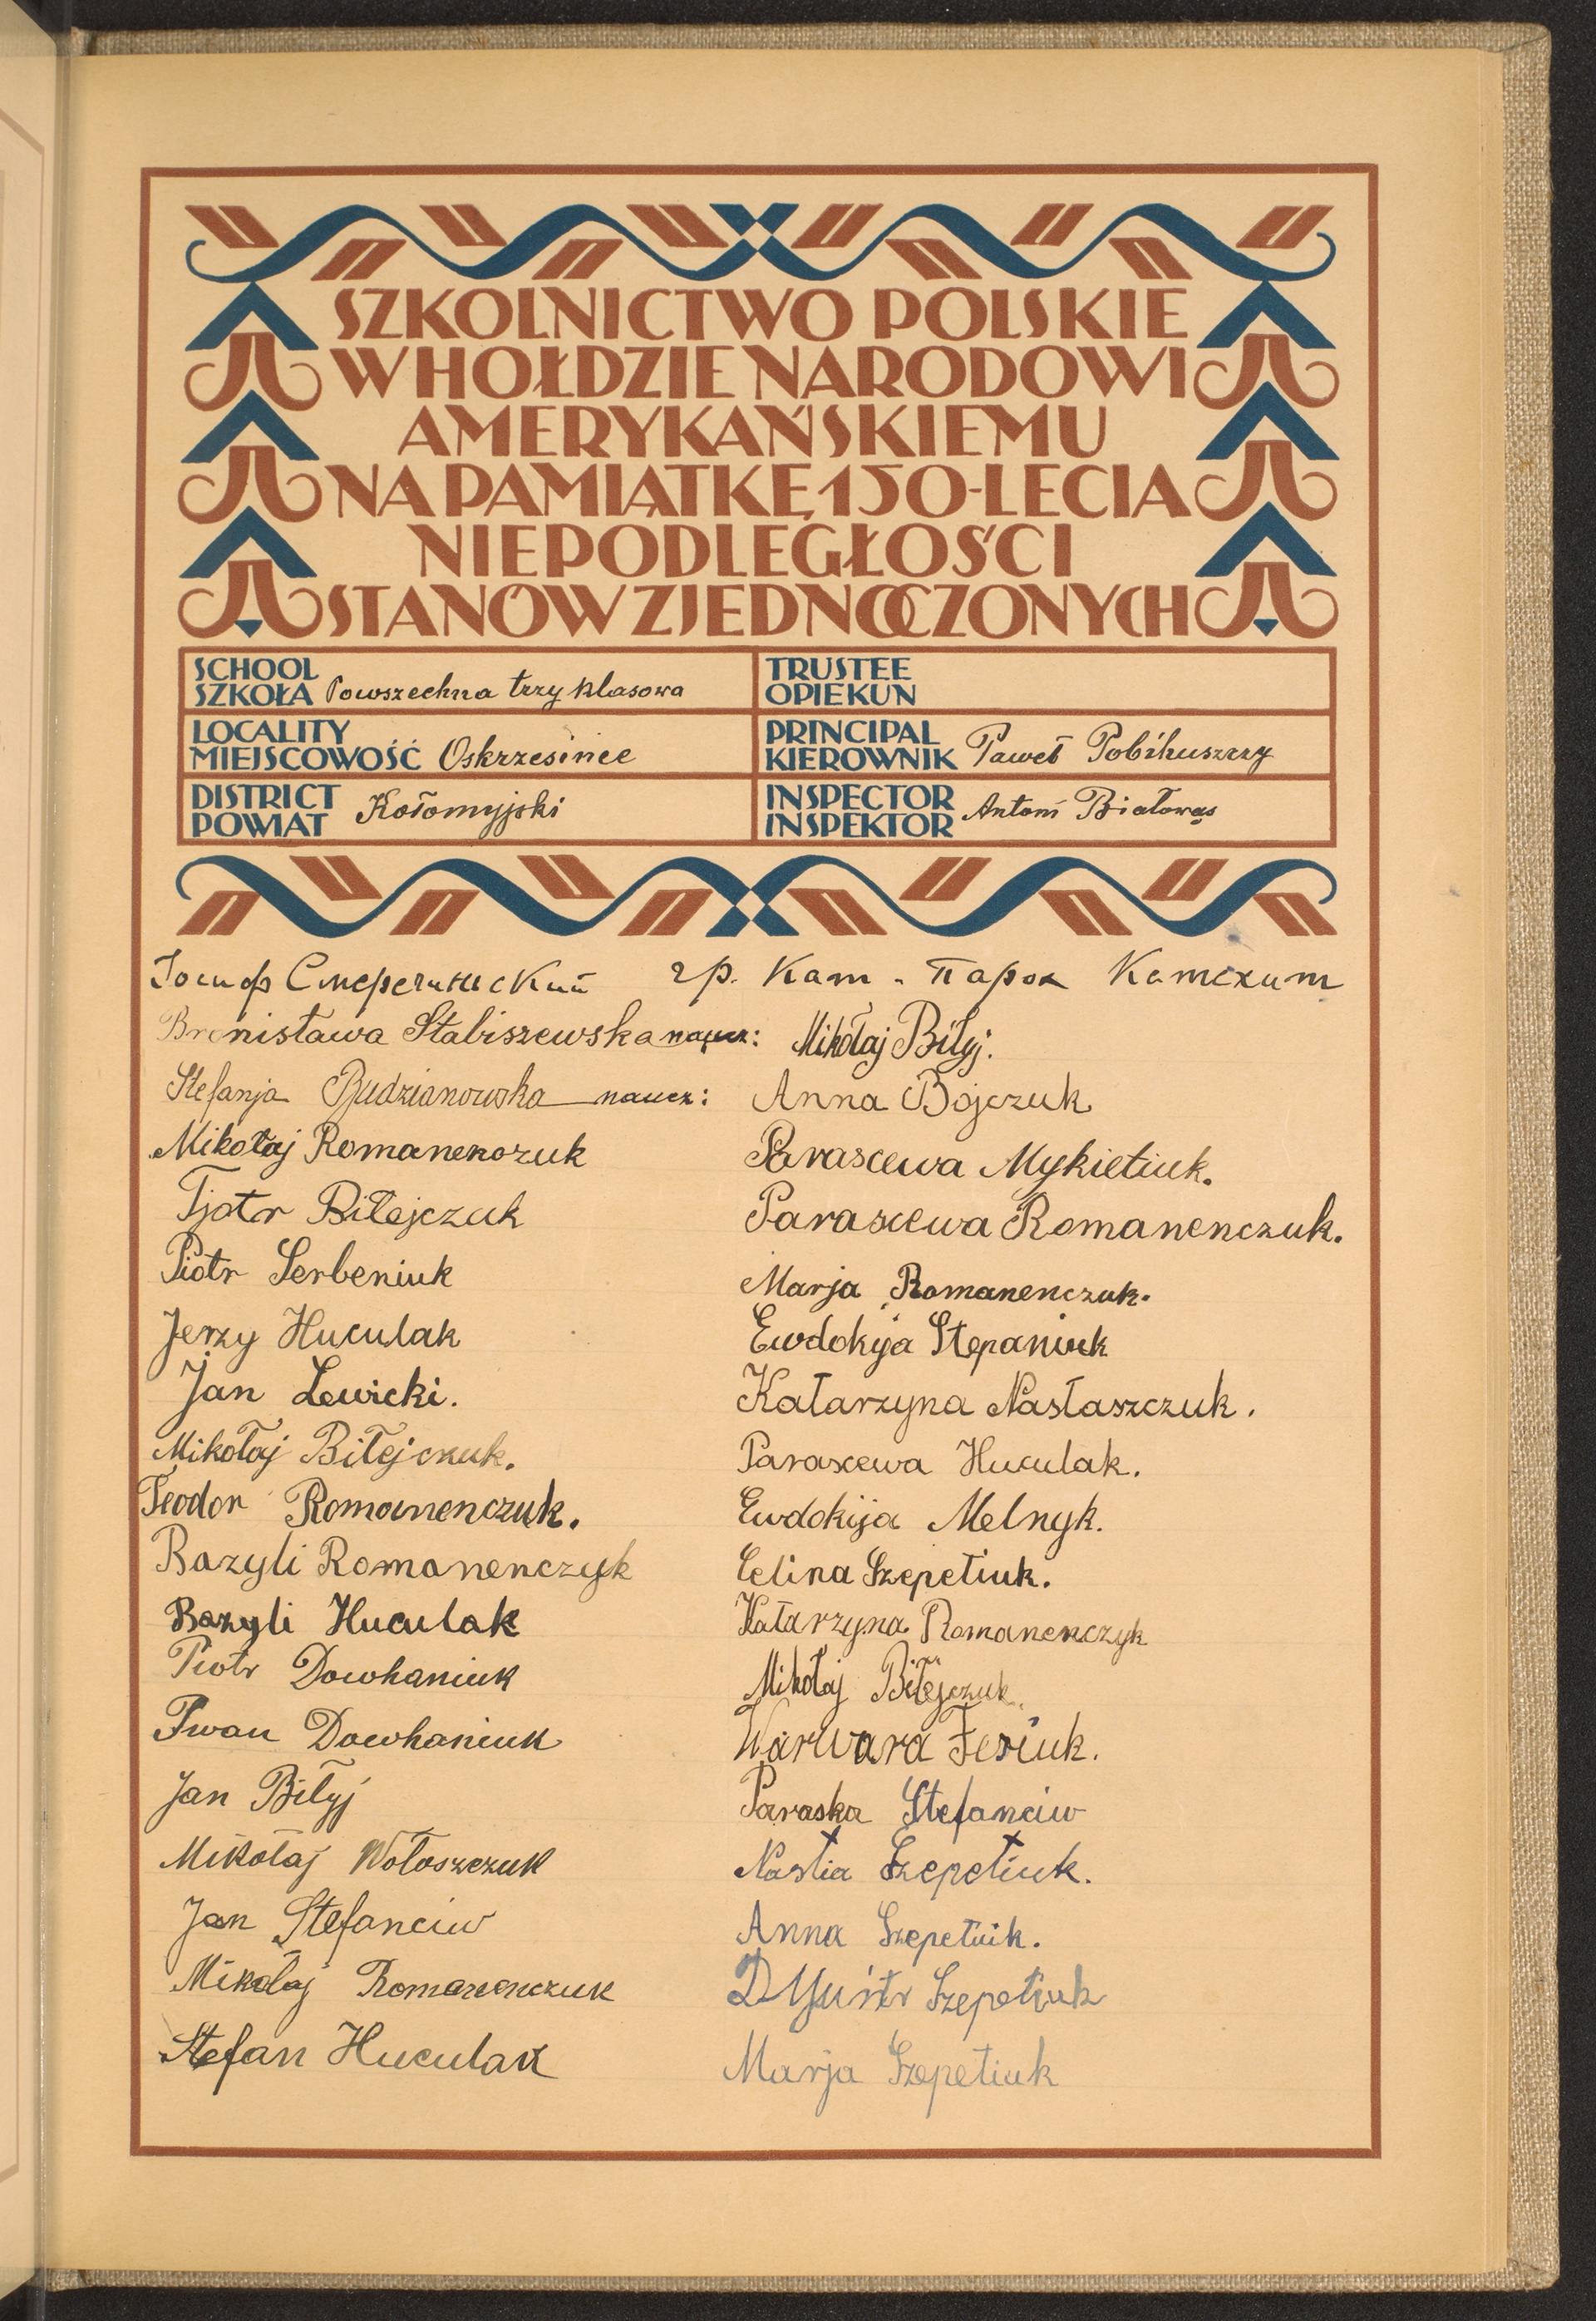 SZKOLNICTWO POLSKIE
W HOŁDZIE NARODOWI
AMERYKAŃSKIEMU
NA PAMIĄTKĘ 150-LECIA
NIEPODLEGŁOŚCI
STANÓW ZJEDNOCZONYCH
SCHOOL
SZKOŁA Powszechna trzy klasowa
TRUSTEE
OPIEKUN
LOCALITY
MIEJSCOWOŚĆ Oskrzesince
PRINCIPAL
KIEROWNIK Paweł Pobihuszczy
DISTRICT
POWIAT Kołomyjski
INSPECTOR
INSPEKTOR Antoni Białowąs
гр. Кат. парох Катехит
Bronisława Stabiszewska naucz:
Stefanja Budzianowska naucz:
Mikołaj Romanenczuk
Pjotr Biłejczuk
Piotr Serbeniuk
Jerzy Huculak
Jan Lewicki.
Mikołaj Biłejczuk.
Teodor Romanenczuk.
Bazyli Romanenczyk
Bazyli Huculak
Piotr Dowhaniuk
Iwan Dowhaniuk
Jan Biłyj
Mikołaj Wołoszczuk
Jan Stefanciw
Mikołaj Romanenczuk
Stefan Huculak
Mikołaj Biłyj.
Anna Bojczuk
Parascewa Mykietiuk.
Parascewa Romanenczuk.
Marja Romanenczuk.
Ewdokija Stepaniuk
Katarzyna Nastaszczuk.
Parascewa Huculak.
Ewdokija Melnyk.
Celina Szepetiuk.
Katarzyna Romanenczyk
Mikołaj Biłejczuk.
Warwara Fesiuk.
Paraska Stefanciw
Nastia Szepetiuk.
Anna Szepetiuk.
Szepetiuk
Marja Szepetiuk